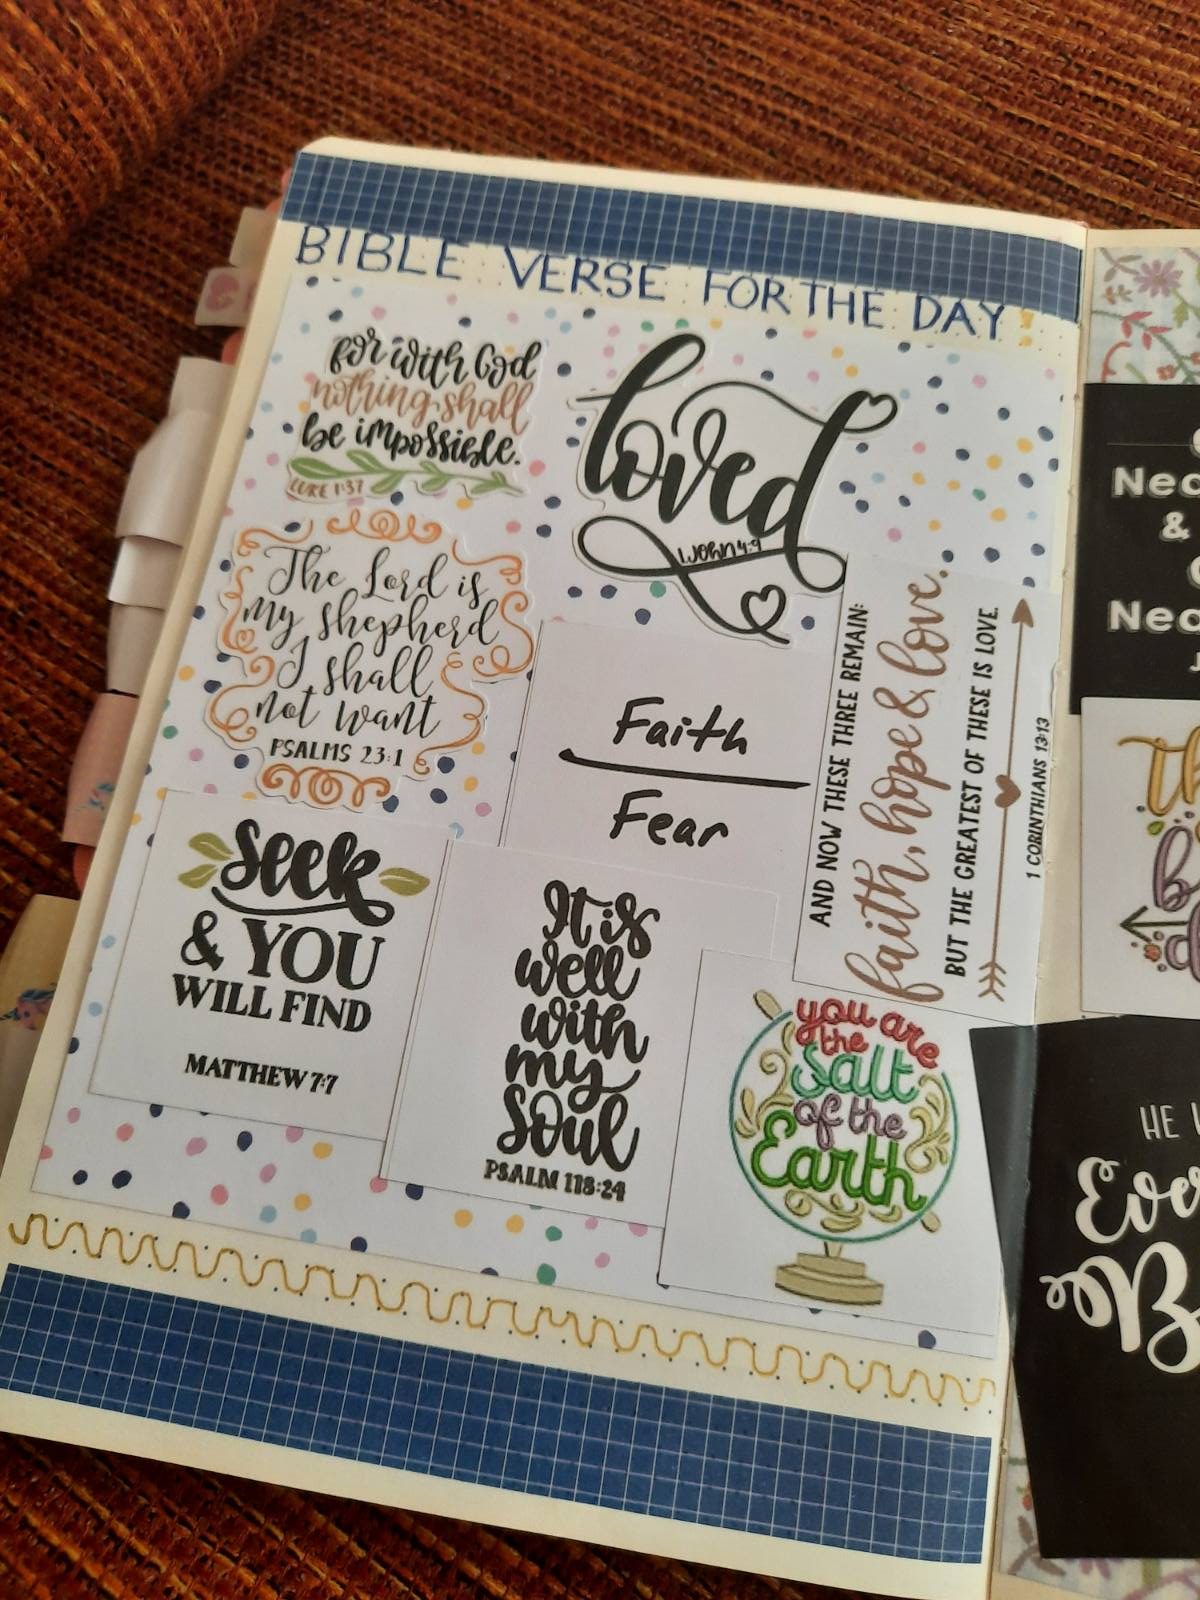 BIBLE VERSE FOR THE DAY
for with God
nothing shall
be impossible.
LUKE 1:37
loved
1 John 4:9
The Lord is
my shepherd
I shall
not want
PSALMS 23:1
Faith
Fear
AND NOW THESE THREE REMAIN:
faith, hope & love.
BUT THE GREATEST OF THESE IS LOVE.
1 CORINTHIANS 13:13
Seek
& YOU
WILL FIND
MATTHEW 7:7
It is
well
with
my
Soul
PSALM 118:24
you are
the
Salt
of the
Earth
Nec
&
Nec
HE